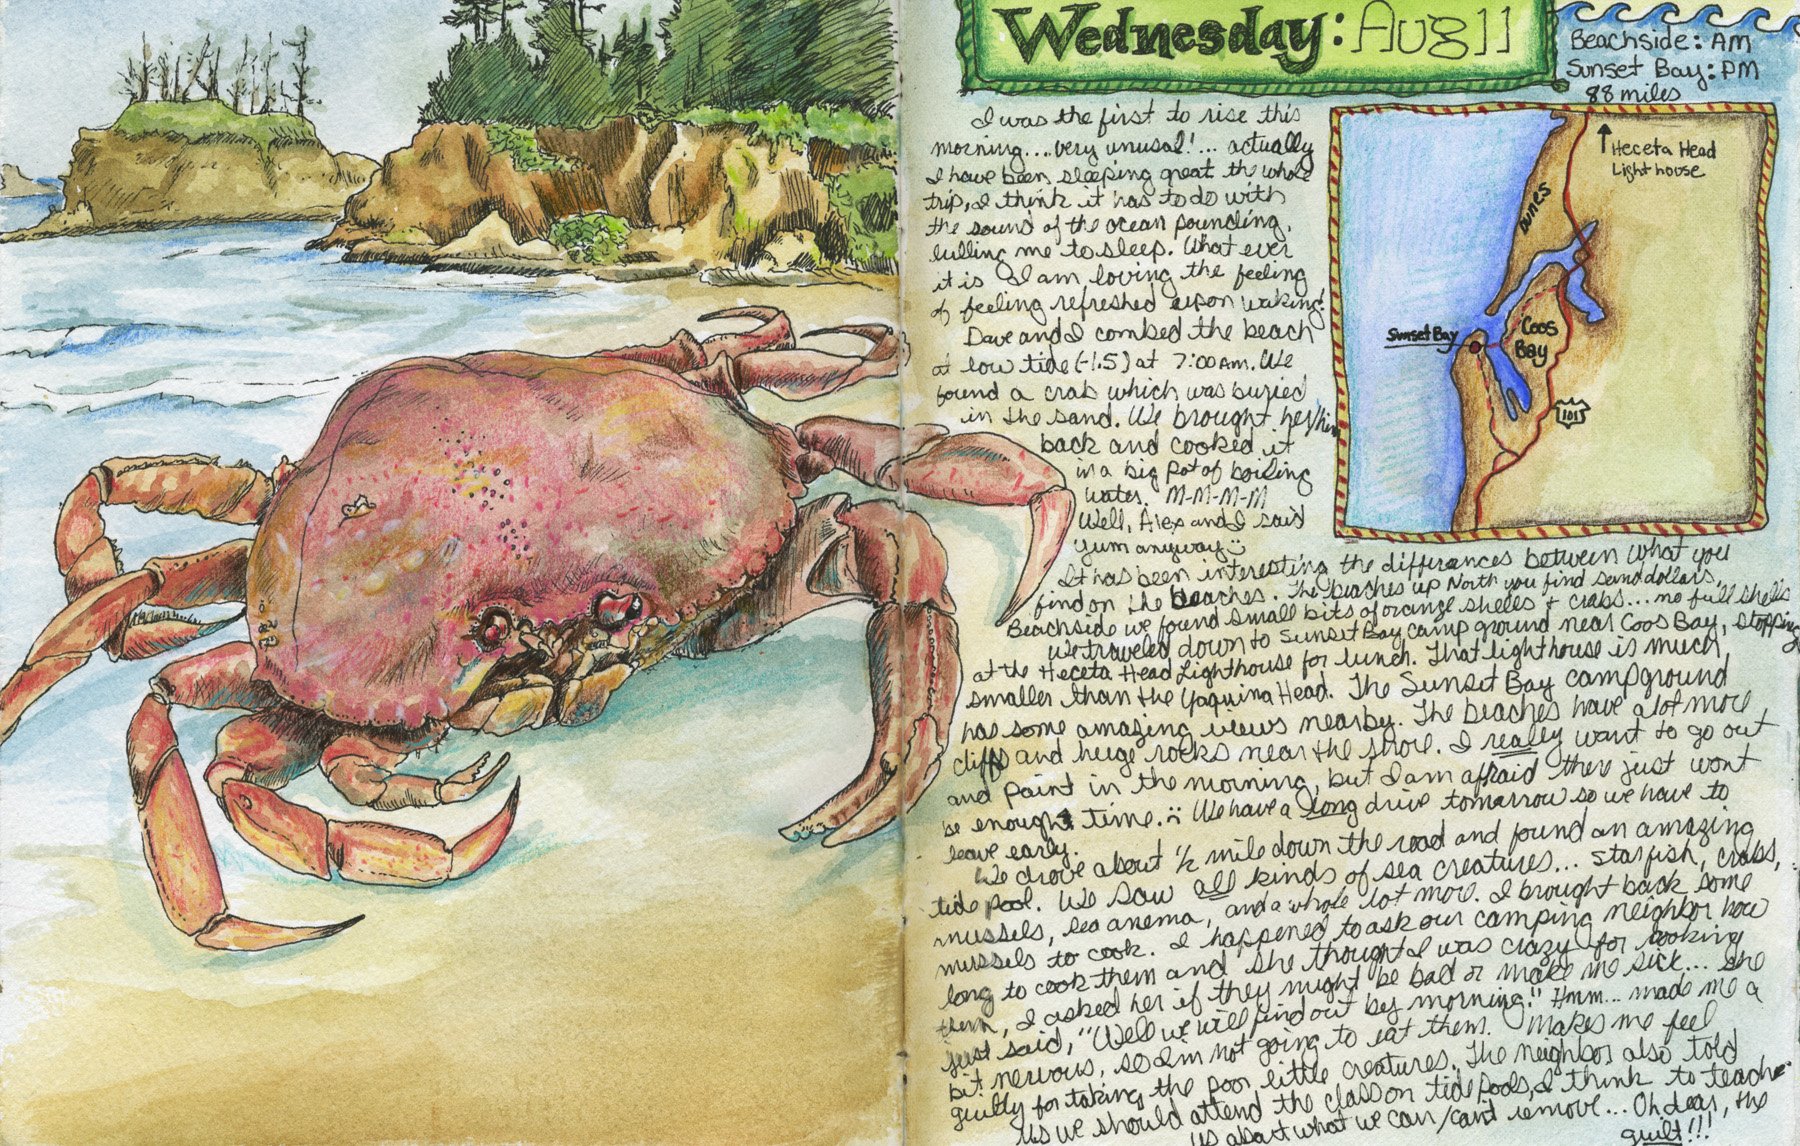 Wednesday: Aug 11
Beachside: AM
Sunset Bay: PM
88 miles
I was the first to rise this
morning... very unusal!... actually
I have been sleeping great the whole
trip, I think it has to do with
the sound of the ocean pounding,
lulling me to sleep. What ever
it is I am loving the feeling
of feeling refreshed upon waking!
Dave and I combed the beach
at low tide (-1.5) at 7:00 AM. We
found a crab which was buried
in the sand. We brought her/him
back and cooked it
in a big pot of boiling
water. M-M-M-M
Well, Alex and I said
yum anyway
Heceta Head
Lighthouse
Dunes
Sunset Bay
Coos
Bay
101
It has been interesting the differances between what you
find on the beaches. The beaches up North you find sand dollars,
Beachside we found small bits of orange shells + crabs... no full shells
We traveled down to Sunset Bay camp ground near Coos Bay, stopping
at the Heceta Head Lighthouse for lunch. That lighthouse is much
smaller than the Yaquina Head. The Sunset Bay campground
has some amazing views nearby. The beaches have a lot more
cliffs and huge rocks near the shore. I really want to go out
and paint in the morning, but I am afraid there just wont
be enough time. We have a long drive tomorrow so we have to
leave early.
We drove about 1/2 mile down the road and found an amazing
tide pool. We saw all kinds of sea creatures... starfish, crabs,
mussels, sea anema, and a whole lot more. I brought back some
mussels to cook. I happened to ask our camping neighbor how
long to cook them and she thought I was crazy for cooking
them, I asked her if they might be bad or make me sick... she
just said, "Well we will find out by morning." Hmm... made me a
bit nervous, so I'm not going to eat them. Makes me feel
guilty for taking the poor little creatures. The neighbor also told
us we should attend the class on tide pools, I think to teach
us about what we can/cant remove... Oh dear, the
guilt!!!